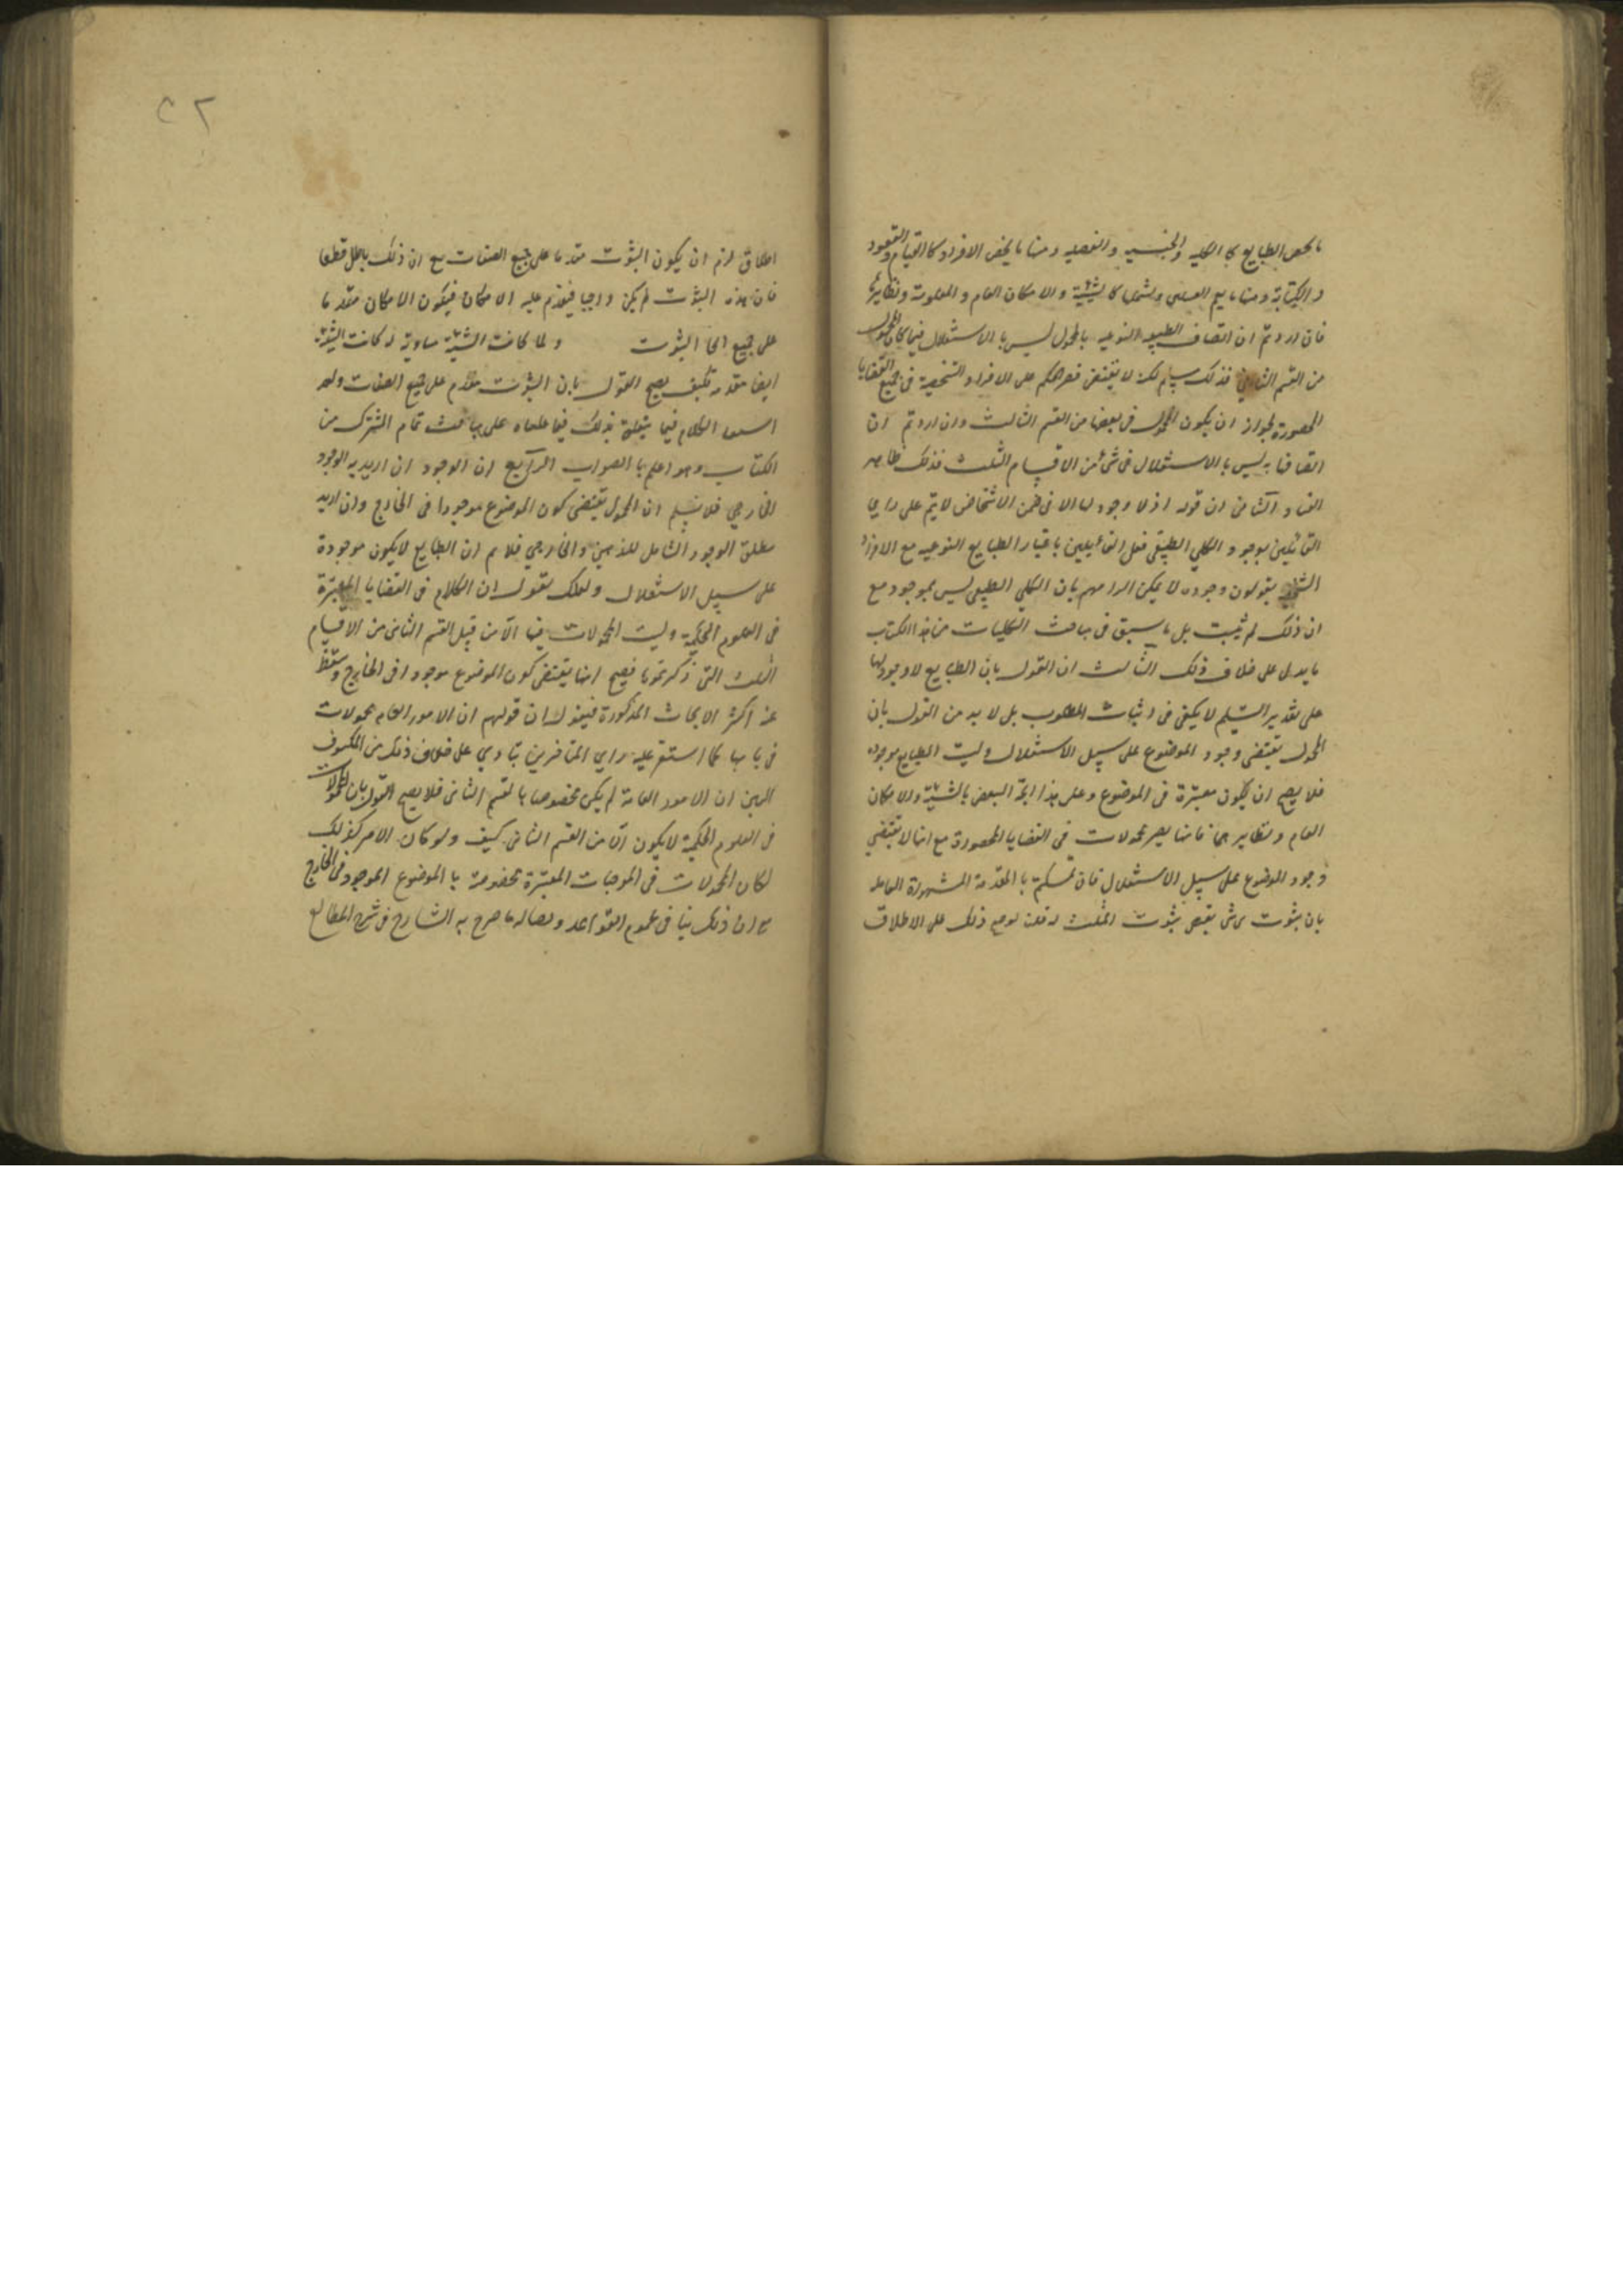 ما يخص الطبايع كالكلية والجنسية والفصلية ومنها ما يخص الافراد كالقيام والقعود
والكتابة ومنها ما يعم القسمين ويشملهما كالشيئية والامكان العام والمعلومية ونظايرها
فان اردتم ان اتصاف الطبيعة النوعية بالمحمول ليس بالاستقلال فيما كان المحمول
من القسم الثاني فذلك مسلم لكنه لا يقتضي قصر الحكم على الافراد الشخصية في جميع القضايا
المحصورة لجواز ان يكون المحمول في بعضها من القسم الثالث وان اردتم ان
اتصافها به ليس بالاستقلال في شئ من الاقسام الثلث فذلك ظاهر
الفساد الثاني ان قوله اذ لا وجود لها الا في ضمن الاشخاص لا يتم على راي
القائلين بوجود الكلي الطبيعي فعلى القائلين باعتبار الطبايع النوعية مع الافراد
يقولون وجوده لا يمكن الزامهم بان الكلي الطبيعي ليس بموجود مع
ان ذلك لم يثبت بل ما سبق في مباحث الكليات من هذا الكتاب
ما يدل على خلاف ذلك الثالث ان القول بان الطبايع لا وجود لها
على تقدير التسليم لا يكفي في اثبات المطلوب بل لا بد من القول بان
المحمول يقتضي وجود الموضوع على سبيل الاستقلال وليست الطبايع موجودة
فلا يصح ان يكون معتبرة في الموضوع وعلى هذا اتجه النقض بالشيئية والامكان
العام ونظايرهما فانها يصير محمولات في القضايا المحصورة مع انها لا تقتضي
وجود الموضوع على سبيل الاستقلال فان تمسكتم بالمقدمة المشهورة القايلة
بان ثبوت شئ لشئ يقتضي ثبوت المثبت له قلت لو صح ذلك على الاطلاق
اطلاق لزم ان يكون الثبوت مقدما على جميع الصفات مع ان ذلك باطل قطعا
فان هذه الثبوت لم يكن واجبا فيقدم عليه الامكان فيكون الامكان مقدما
على جميع انحا الثبوت ولما كانت الشيئية مساوية له كانت الشيئية
ايضا مقدمة فكيف يصح القول بان الثبوت مقدم على جميع الصفات ولقد
اشبعنا الكلام فيما يتعلق بذلك فيما علقناه على مباحث تمام المشترك من
الكتاب وهو اعلم بالصواب الرابع ان الوجود ان اريد به الوجود
الخارجي فلا نسلم ان المحمول يقتضي كون الموضوع موجودا في الخارج وان اريد
مطلق الوجود الشامل للذهني والخارجي فلا نم ان الطبايع لا يكون موجودة
على سبيل الاستقلال ولعلك تقول ان الكلام في القضايا المعتبرة
في العلوم الحكمية وليست المحمولات فيها الا من قبل القسم الثاني من الاقسام
الثلث التي ذكرتموها فيصح انها يقتضي كون الموضوع موجودا في الخارج وسقط
عنه اكثر الابحاث المذكورة فنقول ان قولهم ان الامور العامة محمولات
في بابها كما استقر عليه راي المتاخرين ينادي على خلاف ذلك من المكشوف
البين ان الامور العامة لم يكن مخصوصا بالقسم الثاني فلا يصح القول بان المحمولات
في العلوم الحكمية لا يكون الا من القسم الثاني كيف ولو كان الامر كذلك
لكان المحمولات في الموجبات المعتبرة مخصوصة بالموضوع الموجود في الخارج
مع ان ذلك ينافي عموم القواعد ما صرح به الشارح في شرح المطالع